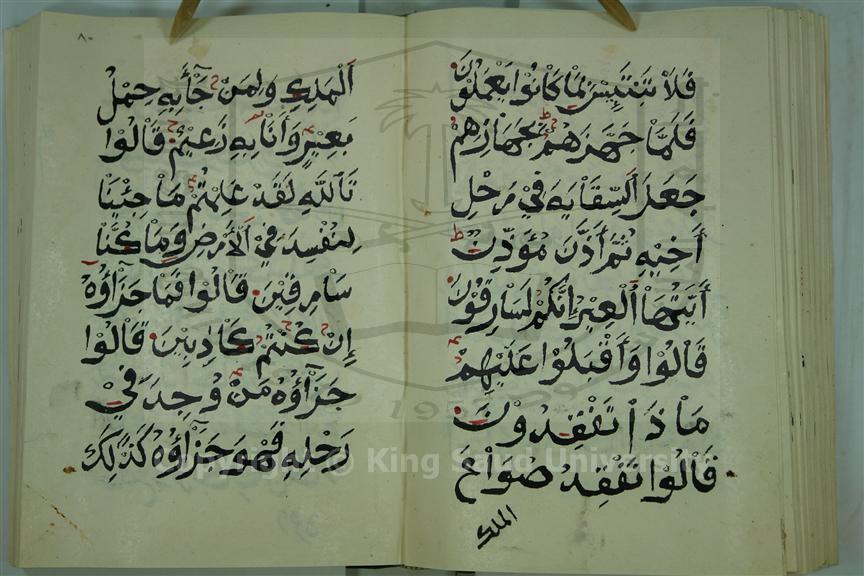 فَلَا تَبْتَئِسْ بِمَا كَانُوا يَعْمَلُونَ
فَلَمَّا جَهَّزَهُمْ بِجَهَازِهِمْ
جَعَلَ السِّقَايَةَ فِي رَحْلِ
أَخِيهِ ثُمَّ أَذَّنَ مُؤَذِّنٌ
أَيَّتُهَا الْعِيرُ إِنَّكُمْ لَسَارِقُونَ
قَالُوا وَأَقْبَلُوا عَلَيْهِمْ
مَاذَا تَفْقِدُونَ
قَالُوا نَفْقِدُ صُوَاعَ
الملك
٨٠
الْمَلِكِ وَلِمَنْ جَآءَ بِهِ حِمْلُ
بَعِيرٍ وَأَنَا بِهِ زَعِيمٌ قَالُوا
تَاللَّهِ لَقَدْ عَلِمْتُمْ مَا جِئْنَا
لِنُفْسِدَ فِي الْأَرْضِ وَمَا كُنَّا
سَارِقِينَ قَالُوا فَمَا جَزَآؤُهُ
إِنْ كُنْتُمْ كَاذِبِينَ قَالُوا
جَزَآؤُهُ مَنْ وُجِدَ فِي
رَحْلِهِ فَهُوَ جَزَآؤُهُ كَذَلِكَ
1957
Copyright © King Saud University